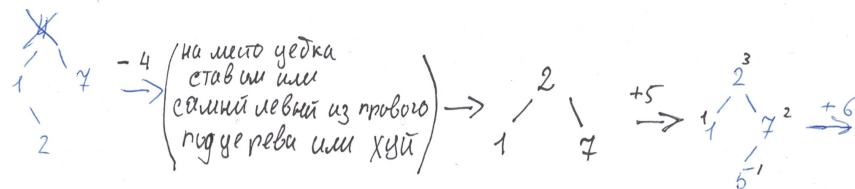 4
1 7
2
- 4
(на место уебка
ставим или
самый левый из правого
поддерева или хуй)
2
1 7
+5
2 3
1 1 7 2
5 1
+ 6